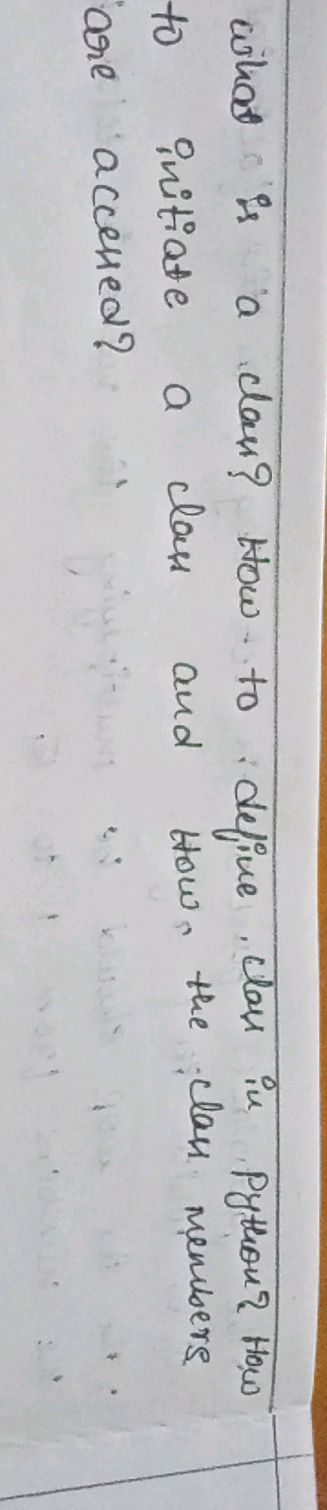 what is a class? How to define class in Python? How
to initiate a class and How the class members
are accessed?